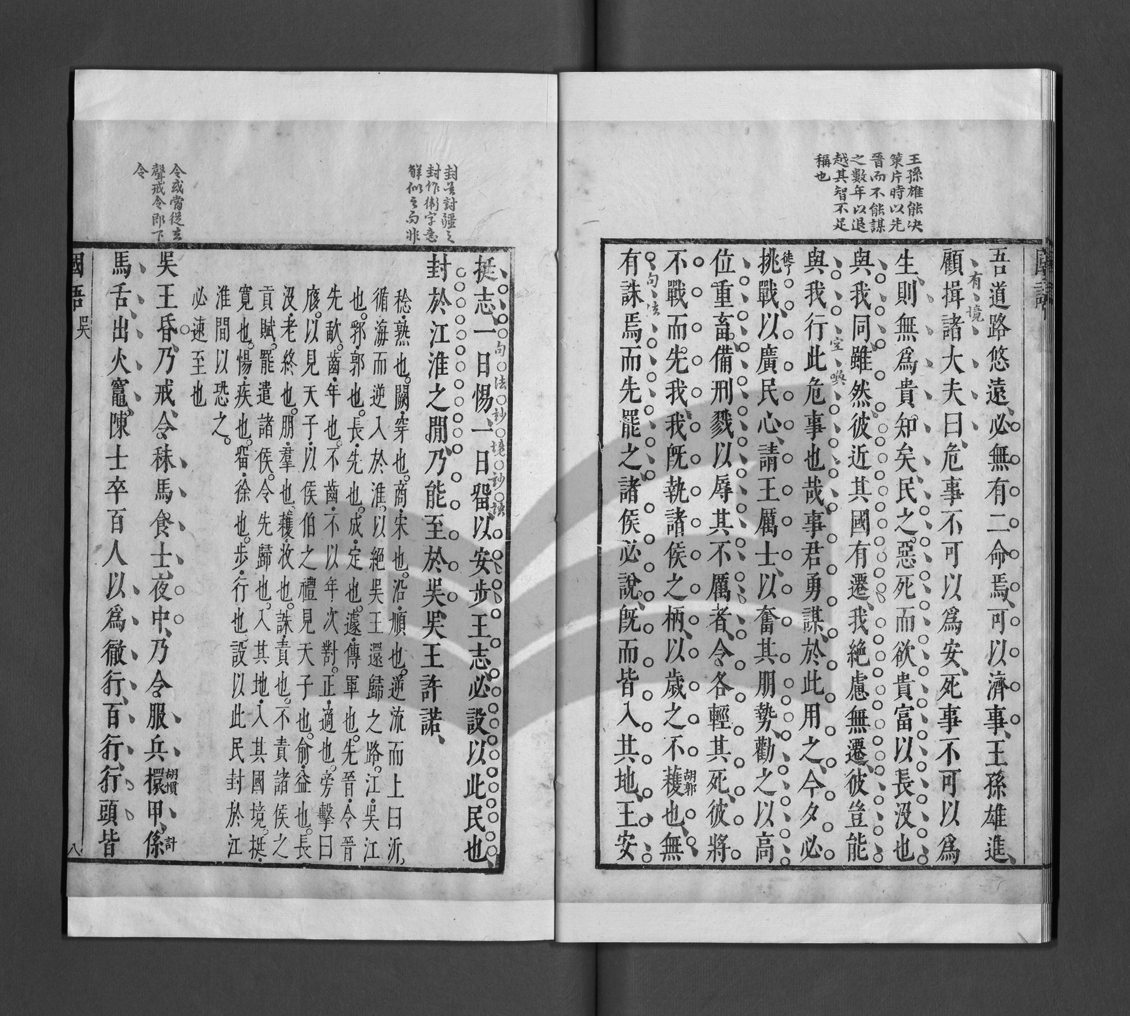 王孫雄能決
策片時以先
晉而不能謀
之數年以退
越其智不足
稱也
吾道路悠遠必無有二命焉可以濟事王孫雄進
顧揖諸大夫曰危事不可以爲安死事不可以爲
有境
生則無爲貴知矣民之惡死而欲貴富以長沒也
與我同雖然彼近其國有遷我絕慮無遷彼豈能
與我行此危事也哉事君勇謀於此用之今夕必
挑戰以廣民心請王厲士以奮其朋勢勸之以高
位重畜備刑戮以辱其不厲者令各輕其死彼將
不戰而先我我旣執諸侯之柄以歲之不穫也無
胡郭
有誅焉而先罷之諸侯必說旣而皆入其地王安
句法
封於江淮之
挺志一日惕一日畱以安步王志必設以此民也
句法妙境妙話
封於江淮之閒乃能至於吳吳王許諾
稔熟也闕穿也商宋也沿順也逆流而上曰泝
循海而逆入於淮以絕吳王還歸之路江吳江
也郛郭也長先也成定也遽傳車也先晉令晉
先歃齒年也不齒不以年次對正適也旁擊曰
㢋以見天子以侯伯之禮見天子也俞益也長
沒老終也朋羣也穫收也誅責也不責諸侯之
貢賦罷遣諸侯令先歸也入其地入其國境挺
寬也惕疾也畱徐也步行也設以此民封於江
淮間以恐之
必速至也
令或當從去
聲戒令卽下
令
吳王昏乃戒令秣馬食士夜中乃令服兵擐甲係
胡慣
計
馬舌出火竈陳士卒百人以爲徹行百行行頭皆
國語
吳
八